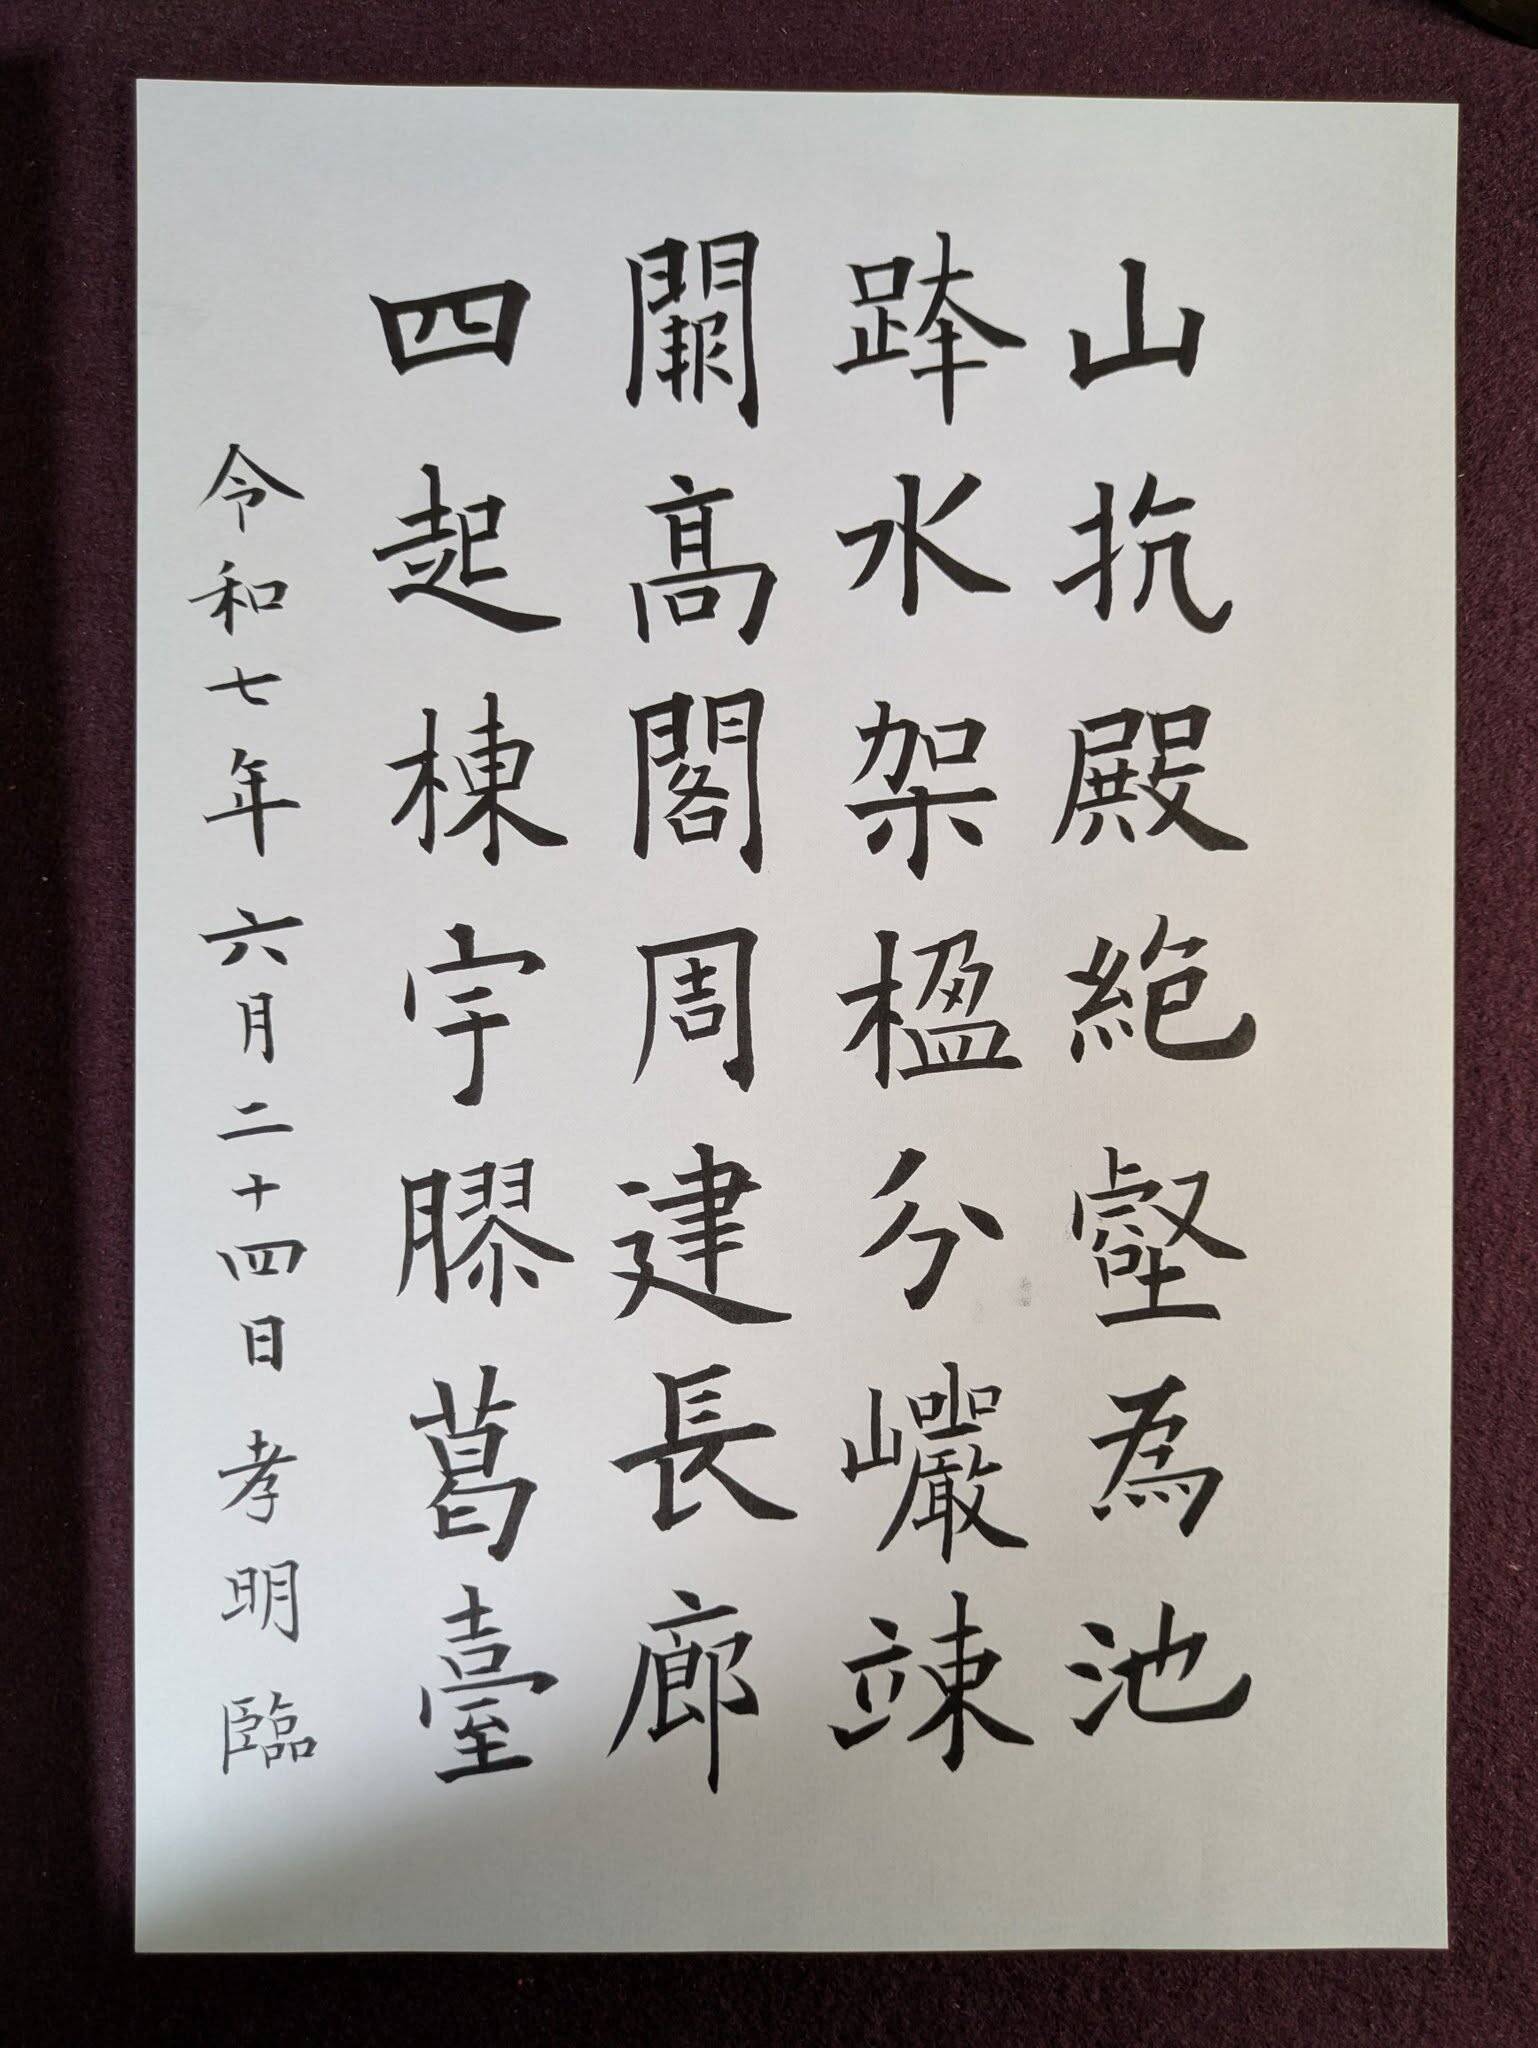 山抗殿絶壑為池
跨水架楹分巖竦
闕高閣周建長廊
四起棟宇膠葛臺
令和七年六月二十四日孝明臨